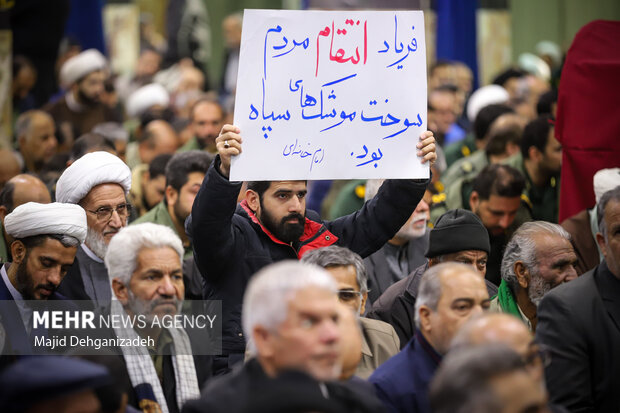 فریاد انتقام مردم
سوخت موشک‌های سپاه
بود.
امام خامنه‌ای
MEHR NEWS AGENCY
Majid Dehganizadeh